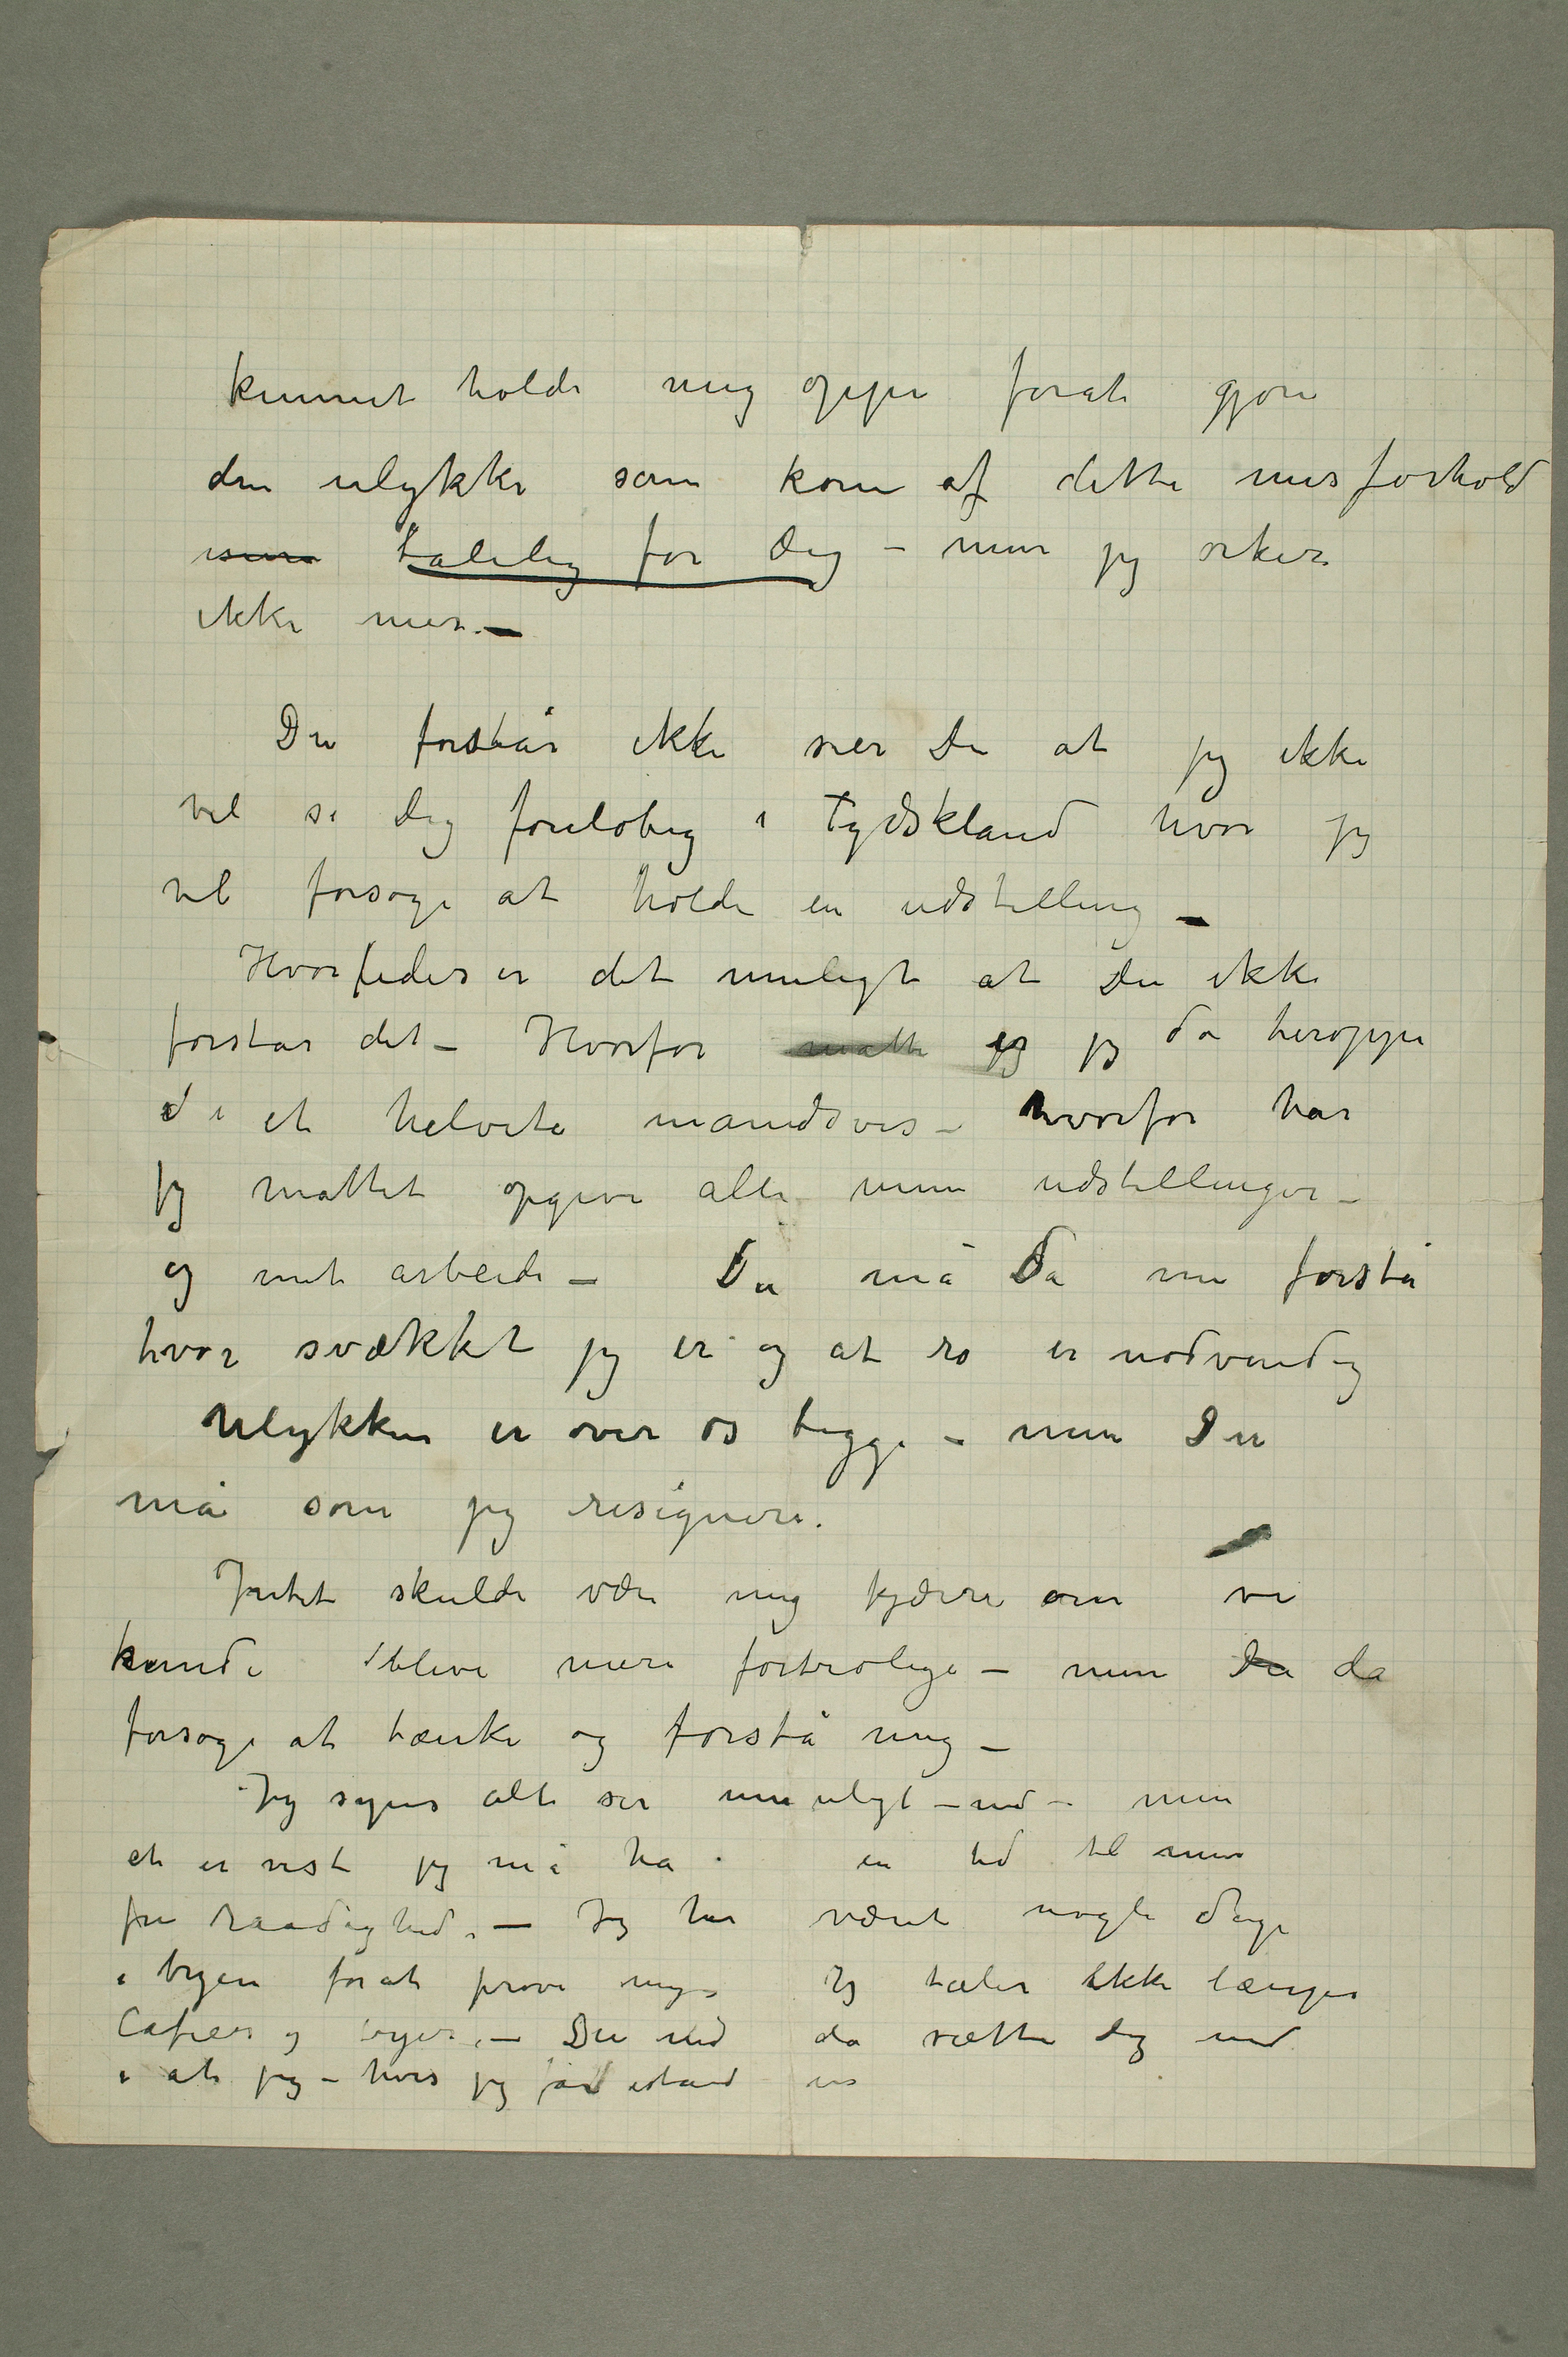 kunnet holde mig oppe forat gjøre
den ulykke som kom af dette misforhold
tålelig for Dig – men jeg orker
ikke mer. –
Du forstår ikke sier Du at jeg ikke
vil se Dig foreløbig i Tydskland hvor jeg
vil forsøge at holde en udstilling –
Hvorledes er det muligt at Du ikke
forstår det – Hvorfor måtte er jeg da heroppe
i et helvete månedsvis – hvorfor har
jeg måttet opgive alle mine udstillinger –
og mit arbeide – Du må da nu forstå
hvor svækket jeg er og at ro er nødvendig
Ulykken er over os begge – men Du
må som jeg resignere.
Intet skulde være mig kjærere om vi
kunde blive mere fortrolige – men Du da
forsøge at tænke og forstå mig –
Jeg synes alt ser umuligt ud – men
et er vist jeg må ha en tid til min
fri raadighed. – Jeg har været nogle dage
i byen forat prøve mig – Jeg taaler ikke længer
Cafeer og byer. – Du må da sætte Dig ind
i at jeg – hvis jeg istand